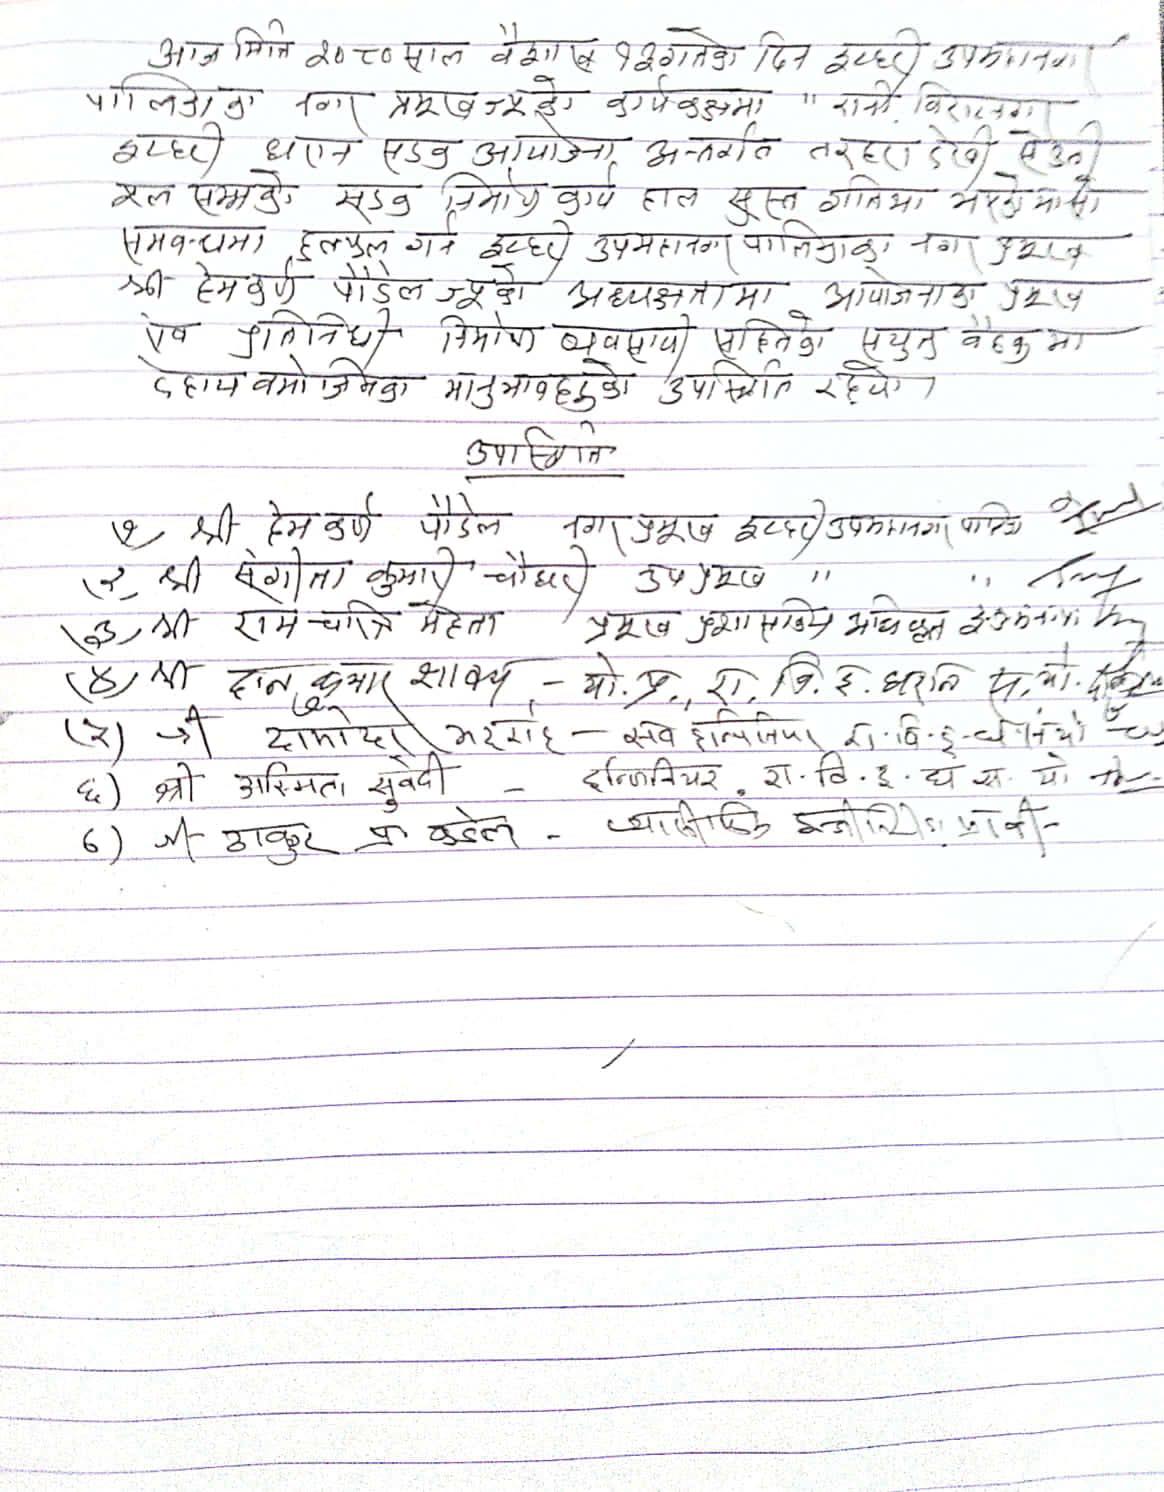 आज मिति २०८० साल वैशाख १३ गतेका दिन इटहरी उपमहानगर
पालिकाका नगर प्रमुख ज्यूको कार्यकक्षमा " रानी विराटनगर
इटहरी धरान सडक आयोजना अन्तर्गत तरहरा देखी सेउती
पुल सम्मको सडक निर्माण कार्य हाल सुस्त गतिमा भएको
सम्बन्धमा छलफल गर्न इटहरी उपमहानगरपालिकाका नगर प्रमुख
श्री हेमकर्ण पौडेल ज्यूको अध्यक्षतामा आयोजनाका प्रमुख
एवं प्रतिनिधी निर्माण व्यवसायी सहितको संयुक्त बैठकमा
देहाय वमोजिमका महानुभावहरुको उपस्थिति रहयो।
उपस्थिति
१, श्री हेमकर्ण पौडेल नगर प्रमुख इटहरी उपमहानगरपालिका
२, श्री संगीता कुमारी चौधरी उपप्रमुख " "
३, श्री राम चरित्र मेहता प्रमुख प्रशासकिय अधिकृत इ.उ.म.न.पा.
(४) श्री दान कुमार शाक्य - यो. प्र., रा. वि. इ. धरान स. यो.
(५) श्री दामोदर भट्टराई - सव इन्जिनियर रा. वि. इ. ध. स. यो
६) श्री अस्मिता सुवेदी - इन्जिनियर, रा. वि. इ. ध स. यो
७) श्री ठाकुर प्र कडेल -